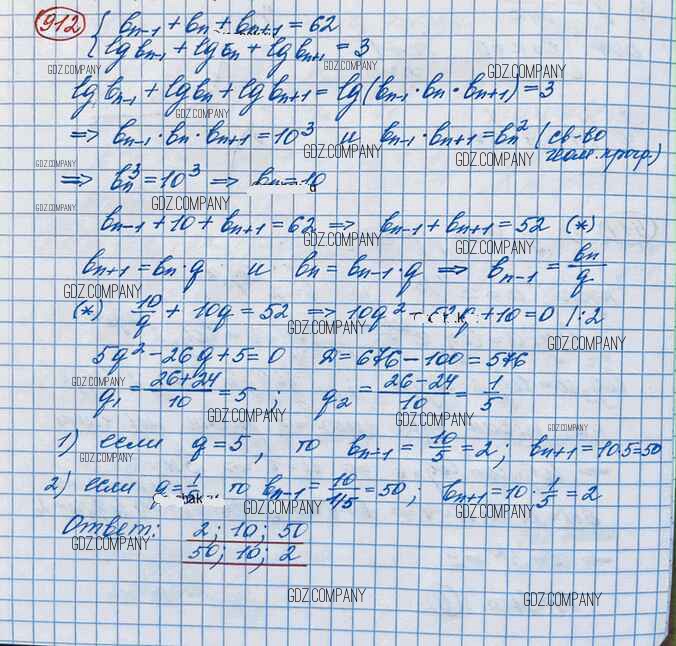 912 { bₙ₋₁ + bₙ + bₙ₊₁ = 62
lg bₙ₋₁ + lg bₙ + lg bₙ₊₁ = 3
GDZ.COMPANY GDZ.COMPANY GDZ.COMPANY
lg bₙ₋₁ + lg bₙ + lg bₙ₊₁ = lg(bₙ₋₁ · bₙ · bₙ₊₁) = 3
GDZ.COMPANY
=> bₙ₋₁ · bₙ · bₙ₊₁ = 10³ и bₙ₋₁ · bₙ₊₁ = bₙ² (св-во
геом. прогр.)
GDZ.COMPANY GDZ.COMPANY GDZ.COMPANY
=> bₙ³ = 10³ => bₙ = 10
GDZ.COMPANY GDZ.COMPANY
bₙ₋₁ + 10 + bₙ₊₁ = 62 => bₙ₋₁ + bₙ₊₁ = 52 (*)
GDZ.COMPANY GDZ.COMPANY
bₙ₊₁ = bₙ · q и bₙ = bₙ₋₁ · q => bₙ₋₁ = bₙ/q
GDZ.COMPANY GDZ.COMPANY
(*) 10/q + 10q = 52 => 10q² - 52q + 10 = 0 |:2
GDZ.COMPANY GDZ.COMPANY
5q² - 26q + 5 = 0 Д = 676 - 100 = 576
GDZ.COMPANY
q₁ = (26+24)/10 = 5 ; q₂ = (26-24)/10 = 1/5
GDZ.COMPANY GDZ.COMPANY GDZ.COMPANY
1) если q = 5, то bₙ₋₁ = 10/5 = 2; bₙ₊₁ = 10·5 = 50
GDZ.COMPANY
2) если q = 1/ то bₙ₋₁ = 10/1/5 = 50; bₙ₊₁ = 10 · 1/5 = 2
GDZ.COMPANY GDZ.COMPANY
Ответ: 2; 10; 50
GDZ.COMPANY
50; 10; 2
GDZ.COMPANY GDZ.COMPANY